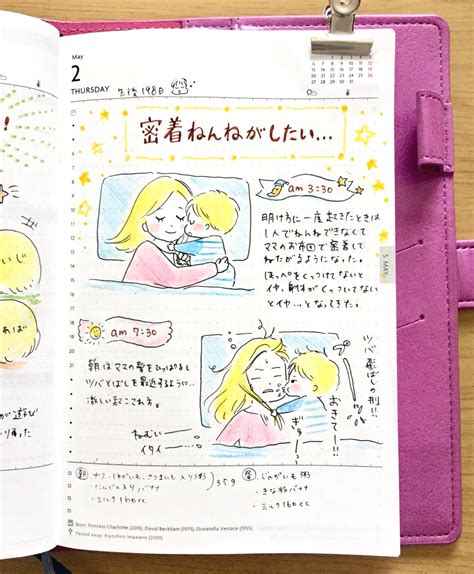 May
2
THURSDAY
生後148日
密着ねんねがしたい…
am 3:30
明け方に一度起きたときは
1人でねんねできなくて
ママのお布団で密着して
ねたがるようになった。
ほっぺをくっつけてないと
イヤ、身体がくっついてない
とイヤ…となってきた。
5 MAY
am 7:30
朝はママの髪をひっぱるし
ツバとばしを最近するように…
激しく起こされる。
ツバ飛ばしの刑!!
おきてー!!
ぎゅ
ねむい
イタイ
朝
・ナス、じゃがいも、さつまいも入り5倍粥
・にんじん入りバナナ
・ミルク160cc
359
昼
・じゃがいも粥
・きな粉バナナ
・ミルク160cc
Born: Princess Charlotte (2015), David Beckham (1975), Donatella Versace (1955)
Passed away: Kiyoshiro Imawano (2009)